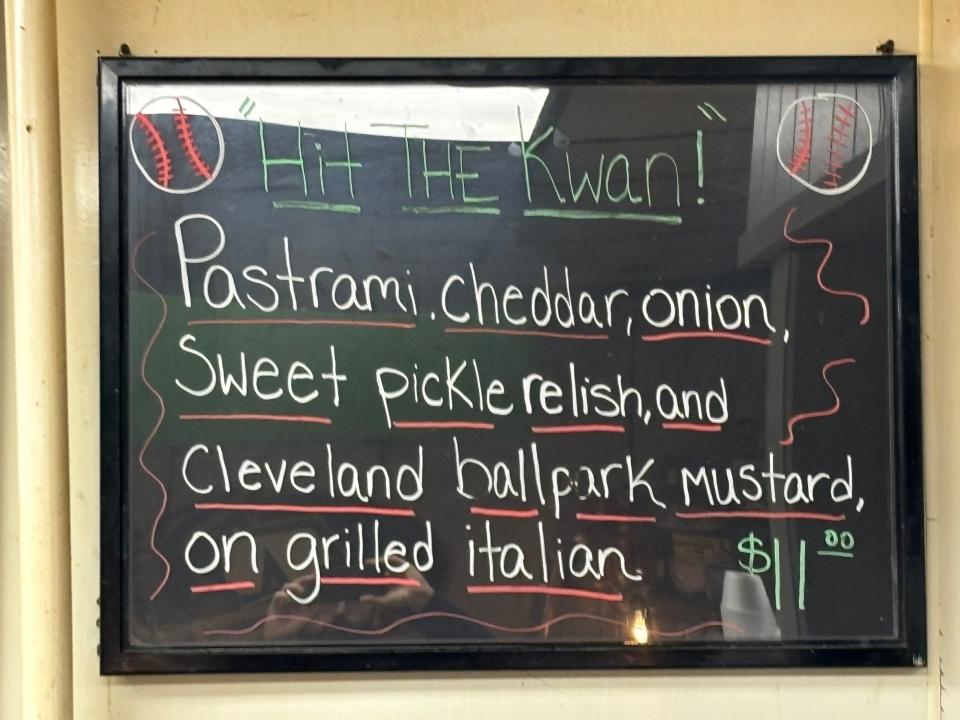 "Hit THE Kwan!"
Pastrami. cheddar, onion,
Sweet pickle relish, and
Cleveland ballpark mustard,
on grilled italian $11 00